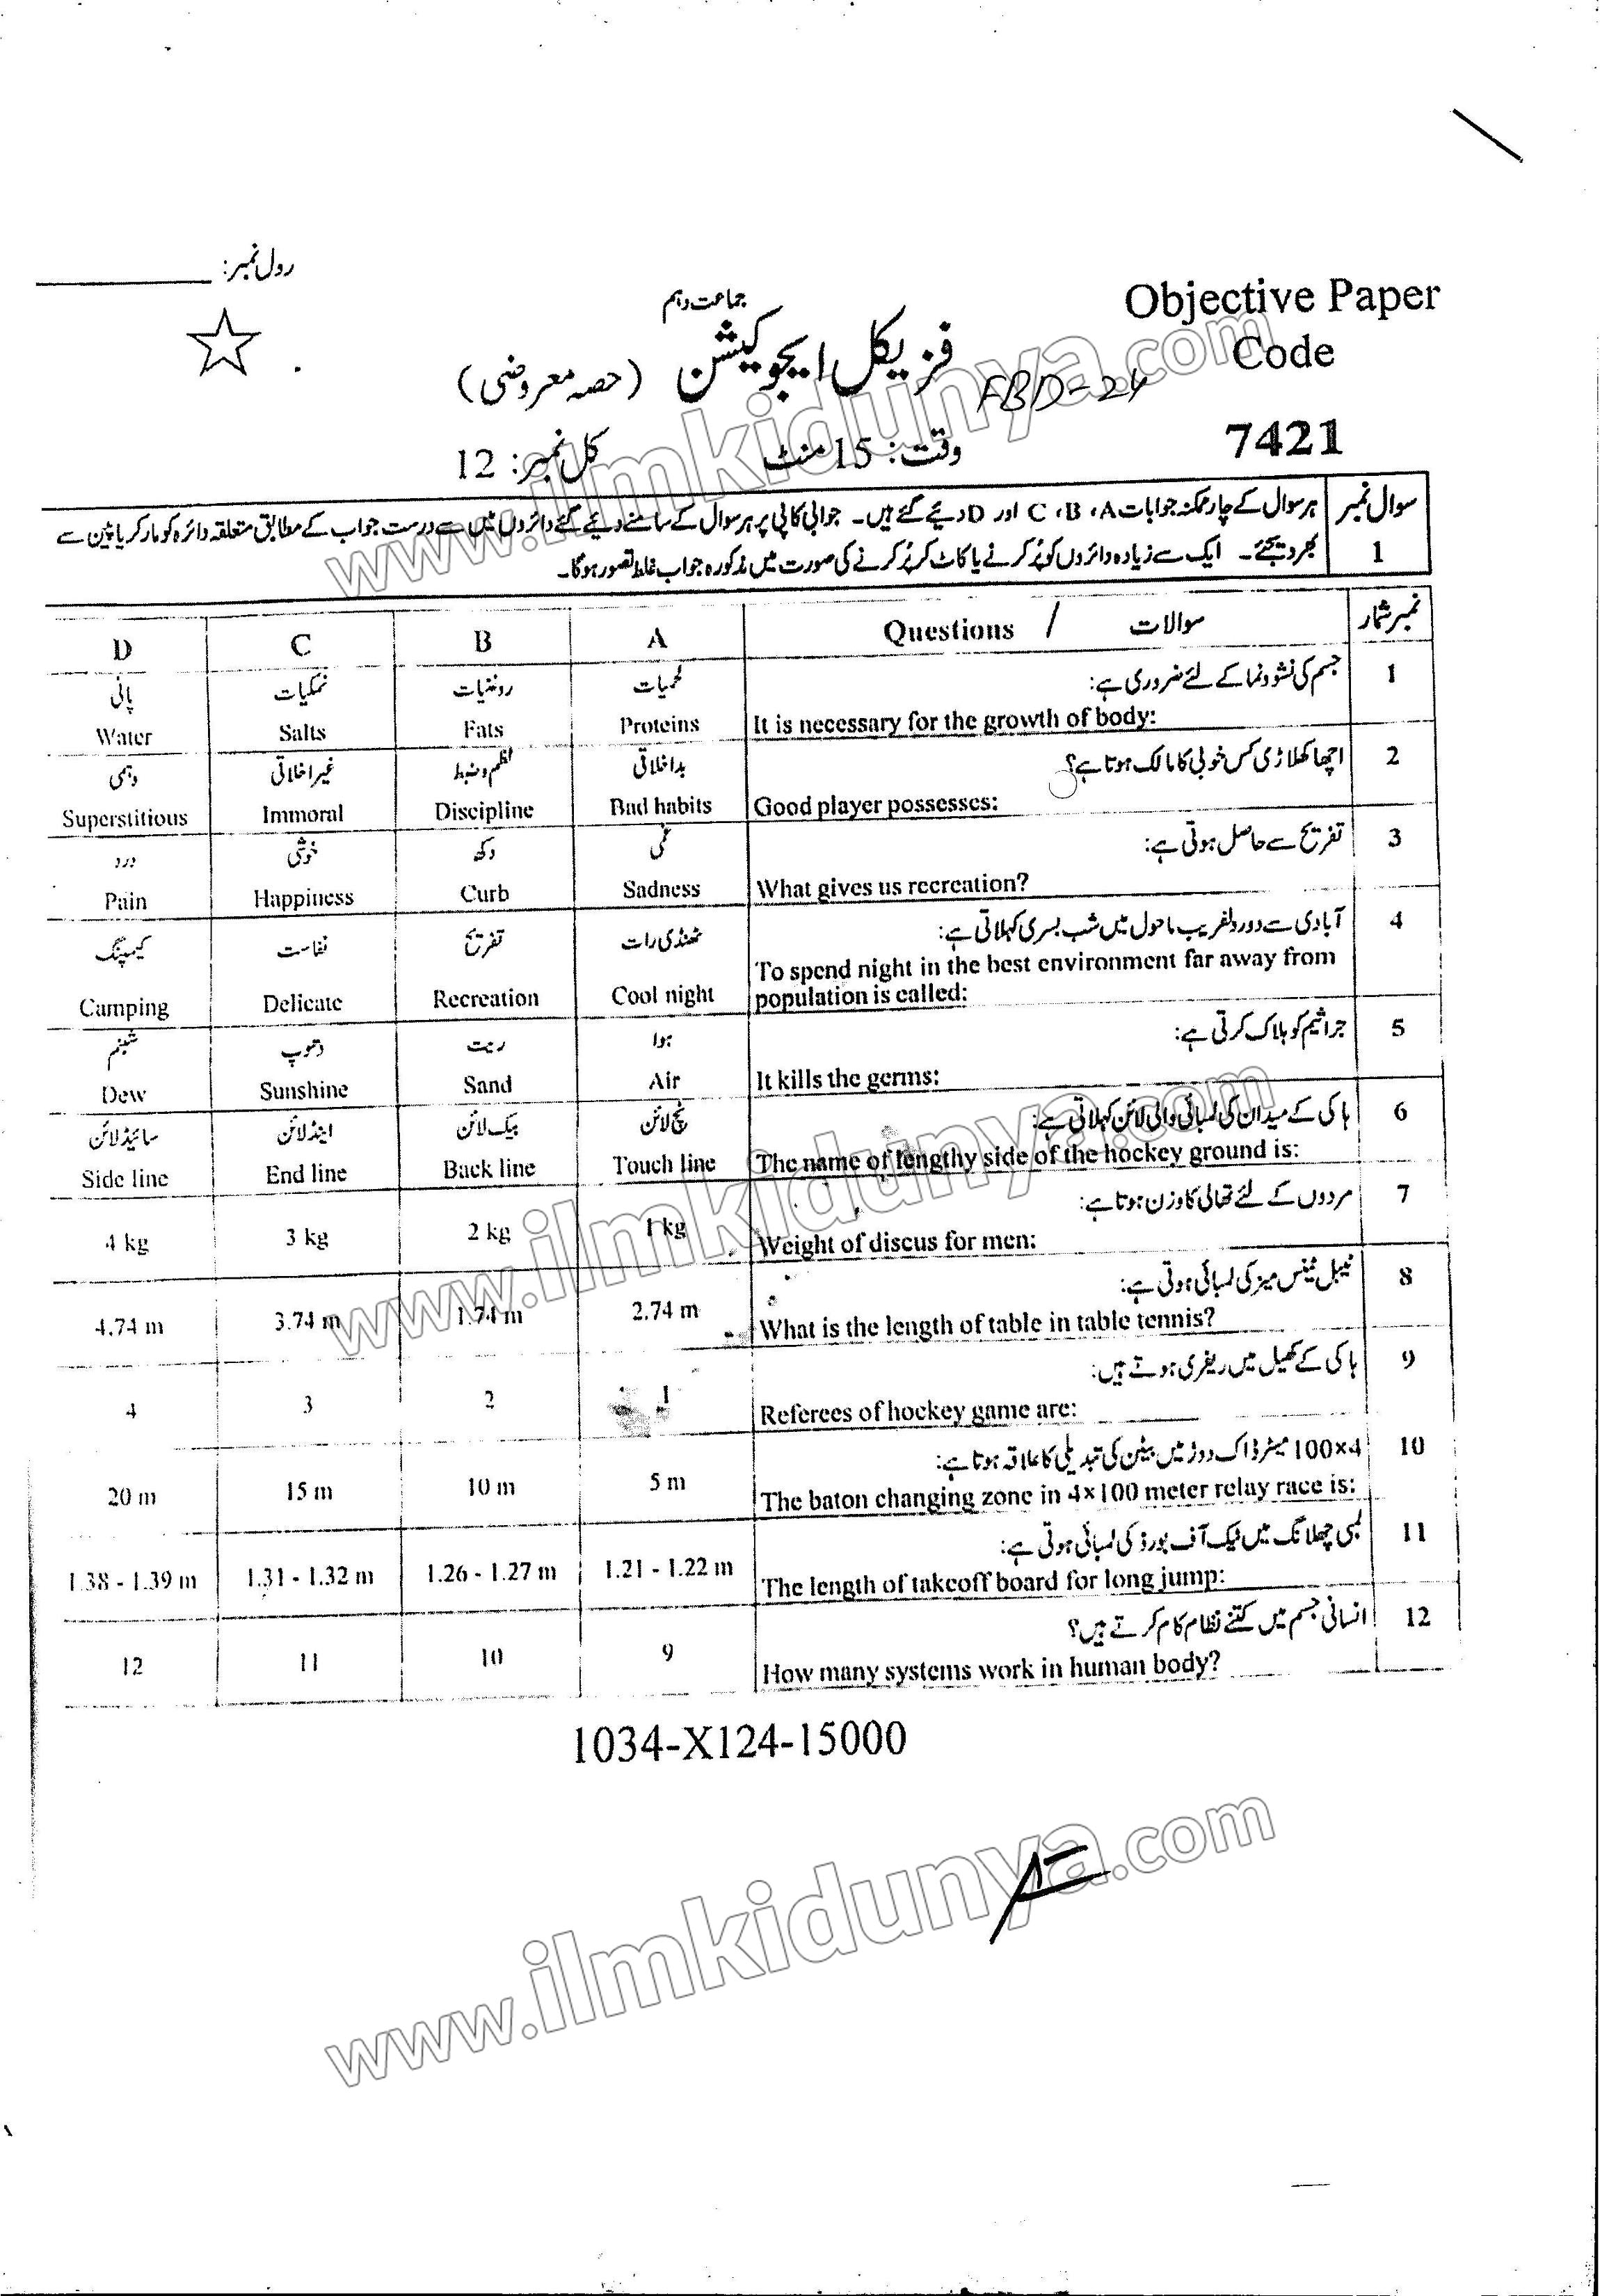 رول نمبر:
جماعت دہم
Objective Paper
Code
فزیکل ایجوکیشن (حصہ معروضی)
FBD-24
7421
وقت: 15 منٹ
کل نمبر: 12
سوال نمبر 1
ہر سوال کے چار ممکنہ جوابات A، B، C اور D دیئے گئے ہیں۔ جوابی کاپی پر ہر سوال کے سامنے دیئے گئے دائروں میں سے درست جواب کے مطابق متعلقہ دائرہ کو مارکر یا پین سے
بھر دیجئے۔ ایک سے زیادہ دائروں کو پُر کرنے یا کاٹ کر پُر کرنے کی صورت میں مذکورہ جواب غلط تصور ہوگا۔
نمبر شمار سوالات / Questions A B C D
1 جسم کی نشوونما کے لئے ضروری ہے: لحمیات روغنیات نمکیات پانی
It is necessary for the growth of body: Proteins Fats Salts Water
2 اچھا کھلاڑی کس خوبی کا مالک ہوتا ہے؟ بداخلاقی نظم و ضبط غیر اخلاقی وہمی
Good player possesses: Bad habits Discipline Immoral Superstitious
3 تفریح سے حاصل ہوتی ہے: غمی دکھ خوشی درد
What gives us recreation? Sadness Curb Happiness Pain
4 آبادی سے دور دلفریب ماحول میں شب بسری کہلاتی ہے: ٹھنڈی رات تفریح نفاست کیمپنگ
To spend night in the best environment far away from
population is called: Cool night Recreation Delicate Camping
5 جراثیم کو ہلاک کرتی ہے: ہوا ریت دھوپ شبنم
It kills the germs: Air Sand Sunshine Dew
6 ہاکی کے میدان کی لمبائی والی لائن کہلاتی ہے: ٹچ لائن بیک لائن اینڈ لائن سائیڈ لائن
The name of lengthy side of the hockey ground is: Touch line Back line End line Side line
7 مردوں کے لئے تھالی کا وزن ہوتا ہے:
Weight of discus for men: 1 kg 2 kg 3 kg 4 kg
8 ٹیبل ٹینس میز کی لمبائی ہوتی ہے:
What is the length of table in table tennis? 2.74 m 1.74 m 3.74 m 4.74 m
9 ہاکی کے کھیل میں ریفری ہوتے ہیں:
Referees of hockey game are: 1 2 3 4
10 4×100 میٹر ڈاک دوڑ میں بیٹن کی تبدیلی کا علاقہ ہوتا ہے:
The baton changing zone in 4×100 meter relay race is: 5 m 10 m 15 m 20 m
11 لمبی چھلانگ میں ٹیک آف بورڈ کی لمبائی ہوتی ہے:
The length of takeoff board for long jump: 1.21 - 1.22 m 1.26 - 1.27 m 1.31 - 1.32 m 1.38 - 1.39 m
12 انسانی جسم میں کتنے نظام کام کرتے ہیں؟
How many systems work in human body? 9 10 11 12
1034-X124-15000
www.ilmkidunya.com
www.ilmkidunya.com
www.ilmkidunya.com